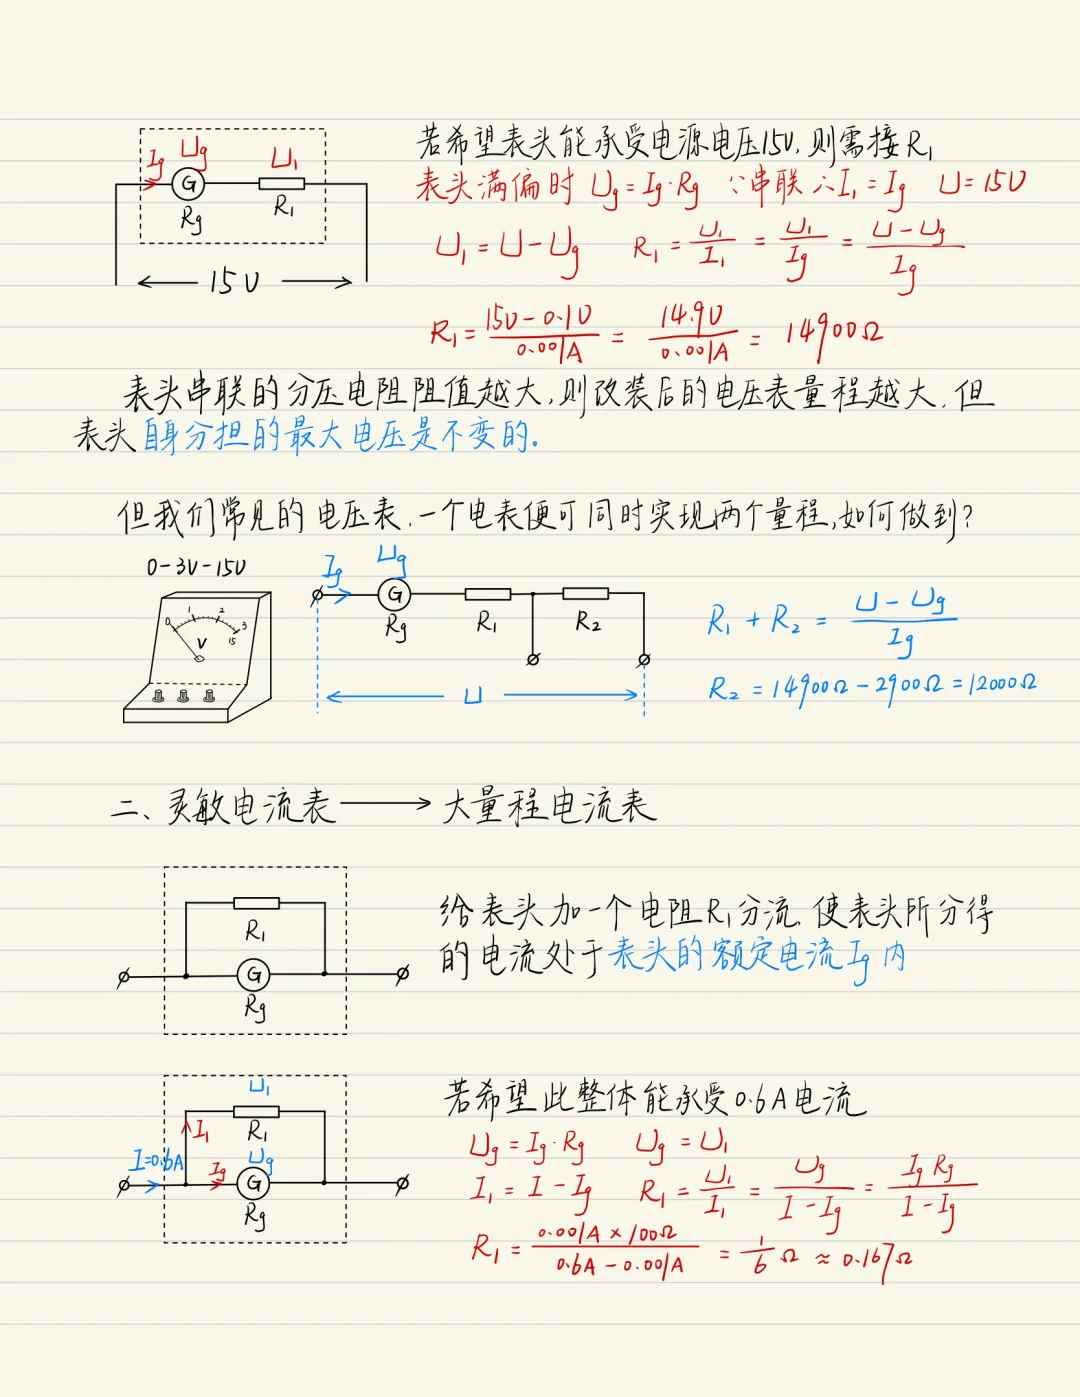 Ig Ug U₁
G
Rg R₁
15V
若希望表头能承受电源电压15V,则需接R₁
表头满偏时 Ug=Ig·Rg ∵串联∴I₁=Ig U=15V
U₁=U-Ug R₁=U₁/I₁=U₁/Ig=(U-Ug)/Ig
R₁=(15V-0.1V)/0.001A=14.9V/0.001A=14900Ω
表头串联的分压电阻阻值越大,则改装后的电压表量程越大.但
表头自身分担的最大电压是不变的。
但我们常见的电压表.一个电表便可同时实现两个量程,如何做到?
0-3V-15V
0 1 2 3
15
V
Ig Ug
G
Rg R₁ R₂
U
R₁+R₂=(U-Ug)/Ig
R₂=14900Ω-2900Ω=12000Ω
二、灵敏电流表→大量程电流表
R₁
G
Rg
给表头加一个电阻R₁分流.使表头所分得
的电流处于表头的额定电流Ig内
U₁
I₁ R₁
I=0.6A Ig Ug
G
Rg
若希望此整体能承受0.6A电流
Ug=Ig·Rg Ug=U₁
I₁=I-Ig R₁=U₁/I₁=Ug/(I-Ig)=IgRg/(I-Ig)
R₁=(0.001A×100Ω)/(0.6A-0.001A)=1/6Ω≈0.167Ω